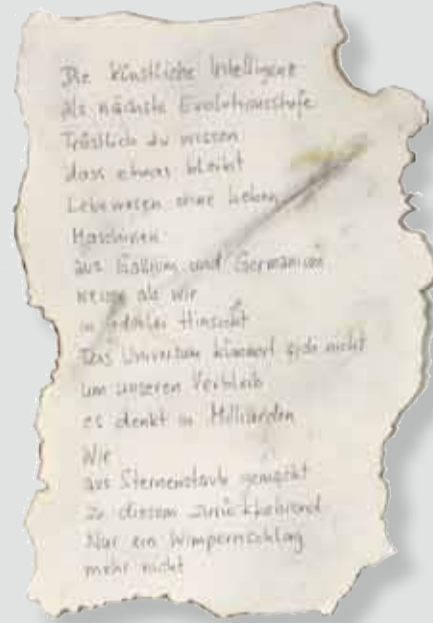 Die künstliche Intelligenz
als nächste Evolutionsstufe
Tröstlich zu wissen
dass etwas bleibt
Lebewesen ohne Leben
Maschinen
aus Gallium und Germanium
weiser als wir
in Hinsicht
Das Universum kümmert sich nicht
um unseren Verbleib
es denkt in Milliarden
Wir
aus Sternenstaub gemacht
zu diesem zurückkehrend
Nur ein Wimpernschlag
mehr nicht